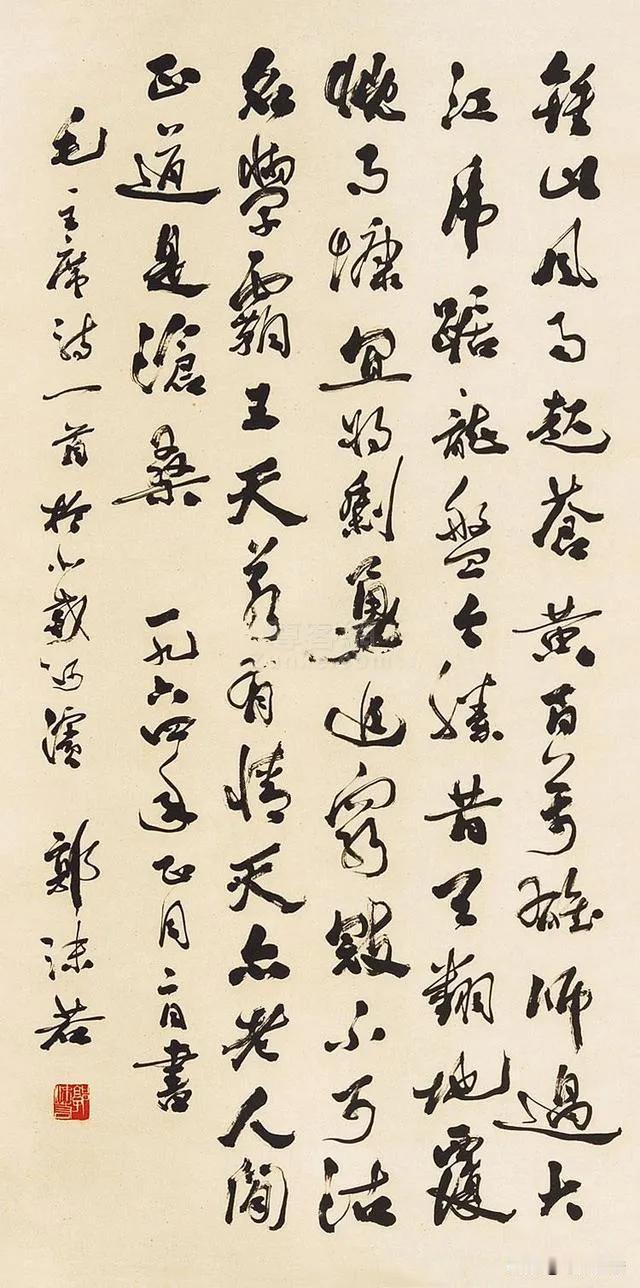 鍾山風雨起蒼黃百萬雄師過大
江虎踞龍盤今勝昔天翻地覆
慨而慷宜將剩勇追窮寇不可沽
名學霸王天若有情天亦老人間
正道是滄桑 一九六四年正月二日書
毛主席詩一首於北戴河濱 郭沫若
郭沫若